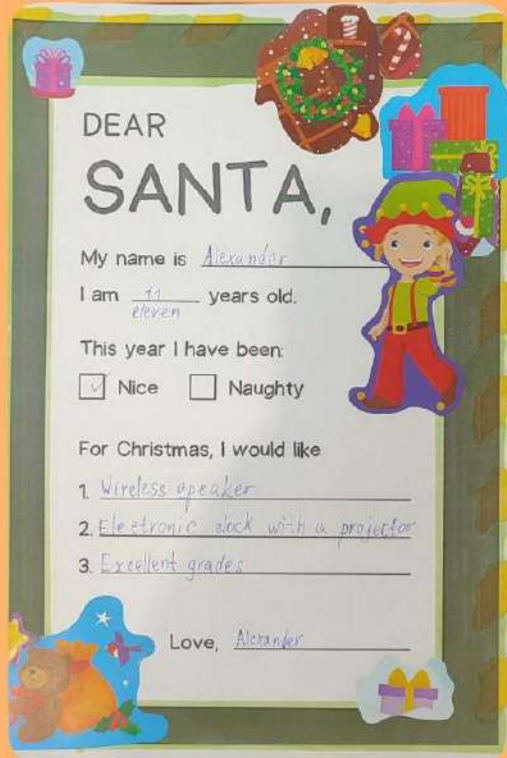 DEAR
SANTA,
My name is Alexander
I am 11 years old.
eleven
This year I have been:
Nice Naughty
For Christmas, I would like
1. Wireless speaker
2. Electronic clock with a projector
3. Excellent grades
Love, Alexander